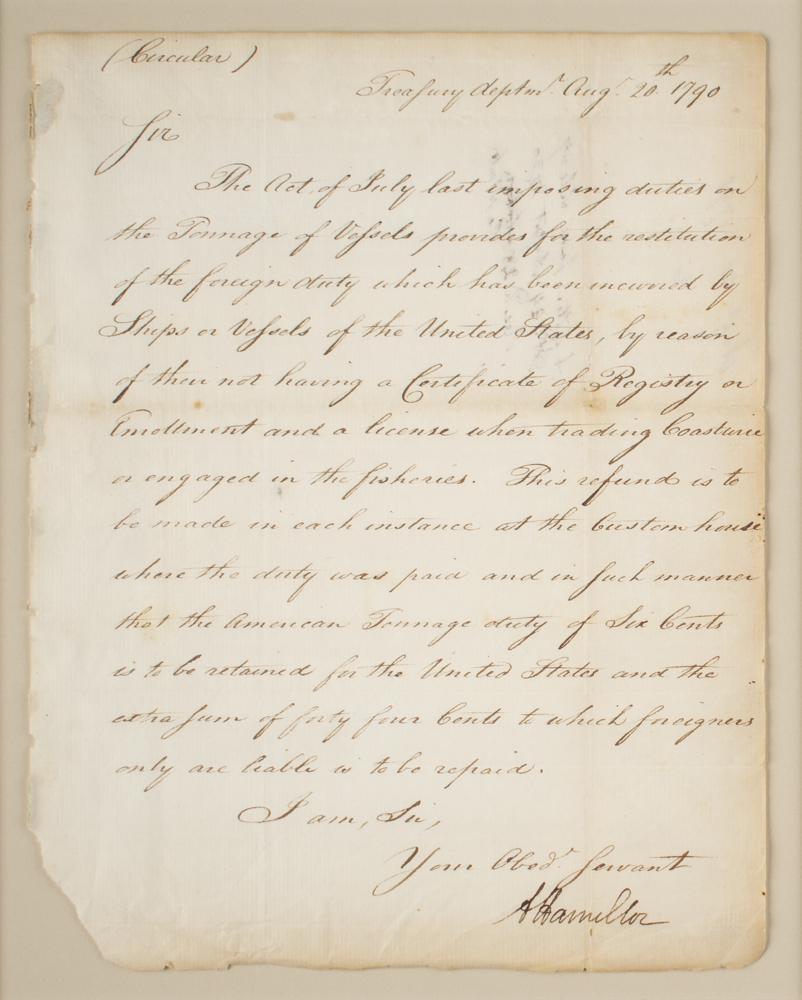 (Circular)
Treasury deptmt. Augt. 20th 1790
Sir
The Act of July last imposing duties on
the Tonnage of Vessels provides for the restitution
of the foreign duty which has been incurred by
Ships or Vessels of the United States, by reason
of their not having a Certificate of Registry or
Enrollment and a license when trading Coastwise
or engaged in the fisheries. This refund is to
be made in each instance at the Custom house
where the duty was paid and in such manner
that the American Tonnage duty of Six Cents
is to be retained for the United States and the
extra sum of forty four Cents to which foreigners
only are liable is to be repaid.
I am, Sir,
Your Obedt. Servant
A Hamilton